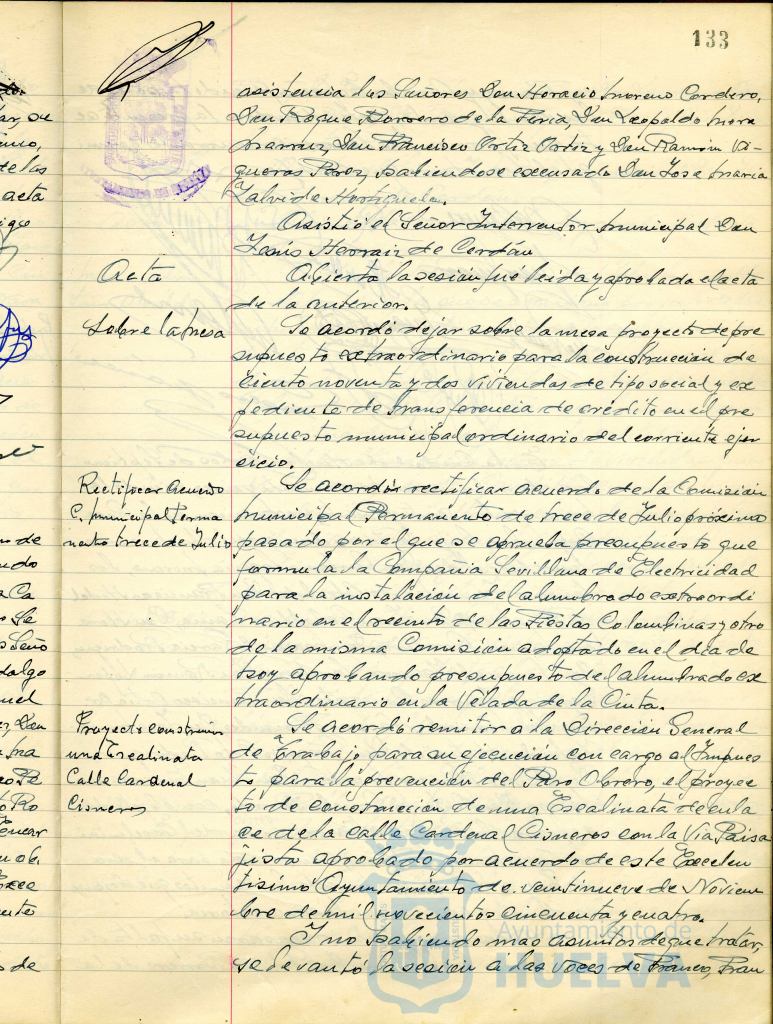 133
asistencia los Señores Don Horacio Moreno Cordero,
Don Roque Borrero de la Feria, Don Leopoldo Mora
Marruz, Don Francisco Ortiz Ortiz y Don Ramón Vi-
gueras Pérez, habiendose excusado Don Jose Maria
Zalvide Hortiguela.
Asistió el Señor Interventor Municipal Don
Jesús Herraiz de Cerdán
Acta
Abierta la sesión fué leida y aprobada el acta
de la anterior.
Sobre la Mesa
Se acordó dejar sobre la mesa proyecto de pre
supuesto extraordinario para la construcción de
Ciento noventa y dos viviendas de tipo social y ex
pediente de transferencia de crédito en el pre
supuesto municipal ordinario del corriente ejer
cicio.
Rectificar acuerdo
C. Municipal Perma
nente trece de Julio
Se acordó rectificar acuerdo de la Comisión
Municipal Permanente de trece de Julio próximo
pasado por el que se aprueba presupuesto que
formula la Compañia Sevillana de Electricidad
para la instalación del alumbrado extraordi
nario en el recinto de las Fiestas Colombinas y otro
de la misma Comisión adoptado en el dia de
hoy aprobando presupuesto del alumbrado ex
traordinario en la Velada de la Cinta.
Proyecto construcción
una Escalinata
Calle Cardenal
Cisneros
Se acordó remitir a la Dirección General
de Trabajo para su ejecución con cargo al Impues
to para la prevención del Paro Obrero, el proyec
to de construcción de una Escalinata de enla
ce de la calle Cardenal Cisneros con la Via Paisa
jista aprobado por acuerdo de este Excelen
tisimo Ayuntamiento de veintinueve de Noviem
bre de mil novecientos cincuenta y cuatro.
Y no habiendo mas asuntos de que tratar,
se levantó la sesión a las voces de Franco, Fran
Ayuntamiento de
HUELVA